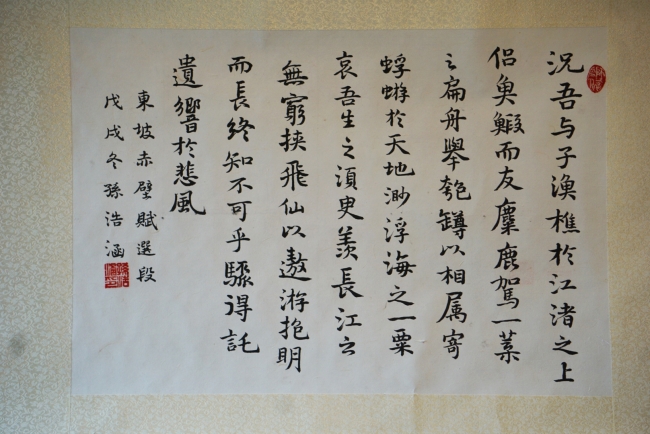 況吾与子漁樵於江渚之上
侣魚鰕而友麋鹿駕一葉
之扁舟舉匏罇以相属寄
蜉蝣於天地渺浮海之一粟
哀吾生之須臾羨長江之
無窮挟飛仙以遨游抱明
而長終知不可乎驟得託
遺響於悲風
東坡赤壁賦選段
戊戌冬孫浩涵